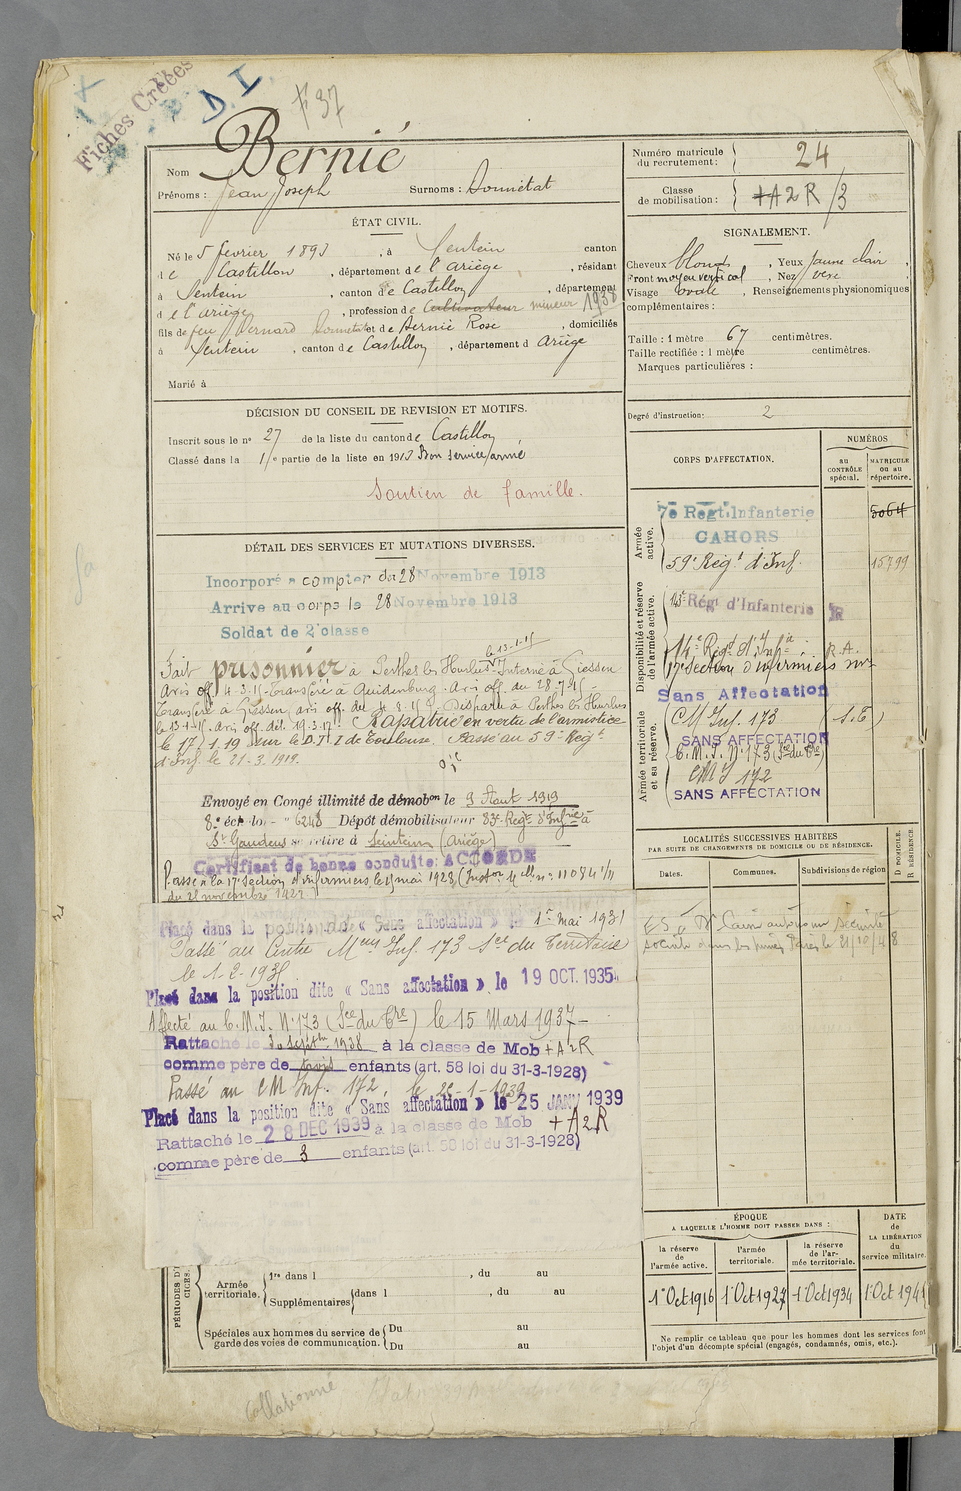 Fiches Créées
D I
F 37
Bernié
Nom
Prénoms : Jean Joseph Surnoms : Donnetat
ÉTAT CIVIL.
Né le 5 février 1893, à Sentein canton
de Castillon, département de l'Ariège, résidant
à Sentein, canton de Castillon, département
de l'ariège, profession de Cultivateur mineur 1938
fils de feu Bernard Donnetat et de Bernié Rose, domiciliés
à Sentein, canton de Castillon, département d Ariège
Marié à
DÉCISION DU CONSEIL DE REVISION ET MOTIFS.
Inscrit sous le no 27 de la liste du canton de Castillon
Classé dans la 1re partie de la liste en 1913 Bon service armé
Soutien de famille.
DÉTAIL DES SERVICES ET MUTATIONS DIVERSES.
Incorporé à compter du 28 Novembre 1913
Arrive au corps le 28 Novembre 1913
Soldat de 2e classe
le 13-1-15
Fait prisonnier à Perthes les Hurlus. Interné à Giessen
Avis off. 4-3-15. Transféré à Quedenburg. Avis off. du 28-7-15
Transféré à Giessen, avis off. du 4-8-15. Disparu à Perthes les Hurlus
le 13-1-15. Avis off. dél. 19-3-17. Rapatrié en vertu de l'armistice
le 17.1.19 sur le D.T.I de Toulouse. Passé au 59e Regt
d'Inf. le 21-3.1919.
Envoyé en Congé illimité de démobon le 9 Aout 1919
8e échelon - no 6248 Dépôt démobilisateur 83e Regt d'Infrie à
St Gaudens se retire à Seintein (Ariège)
Certificat de bonne conduite: ACCORDÉ
Passé à la 17e Section d'infirmiers le 1 mai 1928 (Inston Mlle no 11084 1/11
du 21 novembre 1927
Placé dans la position dite « Sans affectation » le 1er Mai 1931
Passé au Centre Mque Inf. 173 Sce du Territoire
le 1-2-1935
Placé dans la position dite « Sans affectation » le 19 OCT. 1935
Affecté au C.M.I. No 173 (Sce du Tre) le 15 Mars 1937
Rattaché le 30 Septbre 1938 à la classe de Mob + A2R
comme père de trois enfants (art. 58 loi du 31-3-1928)
Passé au CM Inf. 172, le 25-1-1939
Placé dans la position dite « Sans affectation » le 25 JANV 1939
Rattaché le 28 DEC 1939 à la classe de Mob + A2R
comme père de 3 enfants (art. 58 loi du 31-3-1928)
PÉRIODES D'EXER
CICES.
Armée territoriale.
1re dans l , du au
Supplémentaires dans l , du au
Spéciales aux hommes du service de garde des voies de communication.
Du au
Du au
Collationné
Numéro matricule du recrutement : 24
Classe de mobilisation : +A2R/3
SIGNALEMENT.
Cheveux blonds, Yeux jaune clair,
Front moyen vertical, Nez vexe,
Visage ovale, Renseignements physionomiques
complémentaires :
Taille : 1 mètre 67 centimètres.
Taille rectifiée : 1 mètre centimètres.
Marques particulières :
Degré d'instruction : 2
CORPS D'AFFECTATION.
NUMÉROS
au CONTRÔLE spécial.
MATRICULE ou au répertoire.
Armée active.
7e Regt. Infanterie 5064
CAHORS
59e Regt d'Inf. 15799
Disponibilité et réserve de l'armée active.
Régt d'Infanterie R
14e Regt d'Infie R.A.
17e Section d'infirmiers mres
Sans Affectation
Armée territoriale et sa réserve.
CM Inf. 173 (S.T)
SANS AFFECTATION
C.M.I. No 173 (Sce du Tre)
CMI 172
SANS AFFECTATION
LOCALITÉS SUCCESSIVES HABITÉES
PAR SUITE DE CHANGEMENTS DE DOMICILE OU DE RÉSIDENCE.
Dates. Communes. Subdivisions de région
D. DOMICILE.
R. RÉSIDENCE.
ÉPOQUE
A LAQUELLE L'HOMME DOIT PASSER DANS :
DATE de LA LIBÉRATION du service militaire.
la réserve de l'armée active.
l'armée territoriale.
la réserve de l'armée territoriale.
1er Oct 1916 1er Oct 1927 1er Oct 1934 1er Oct 1941
Ne remplir ce tableau que pour les hommes dont les services font
l'objet d'un décompte spécial (engagés, condamnés, omis, etc.).